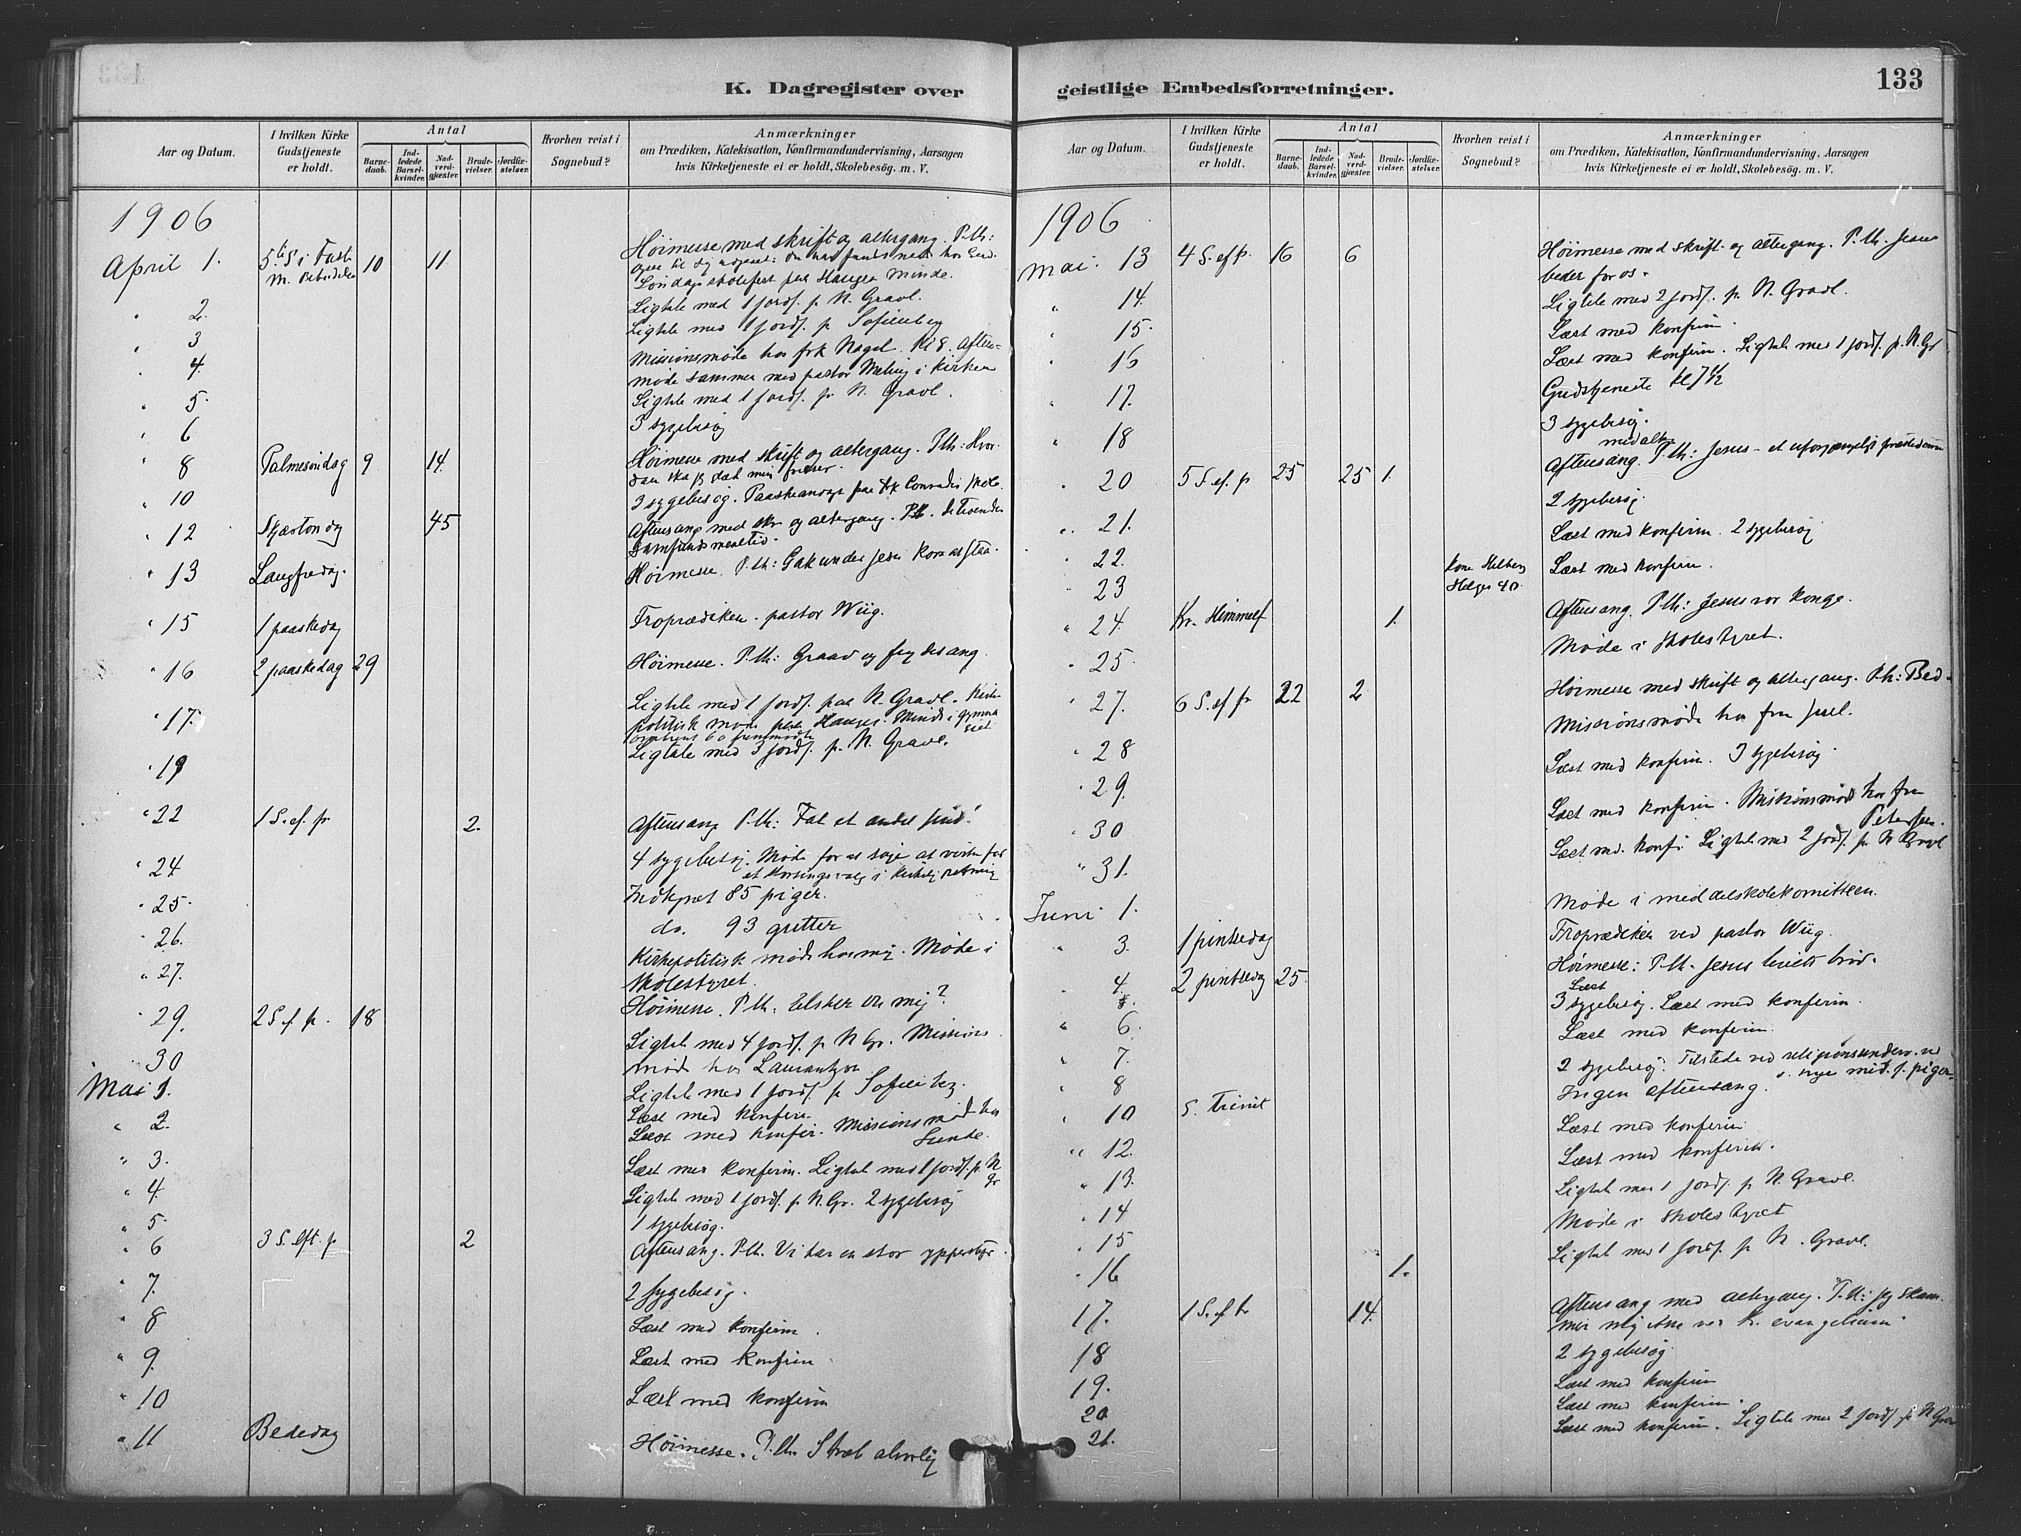 133
K. Dagregister over
geistlige Embedsforretninger.
Aar og Datum.
I hvilken Kirke Gudstjeneste er holdt.
Antal
Barnedaab.
Indledede Barselkvinder.
Nadverdgjæster.
Brudevielser.
Jordfæstelser.
Hvorhen reist i Sognebud?
Anmærkninger
om Prædiken, Katekisation, Konfirmandundervisning, Aarsagen
hvis Kirketjeneste ei er holdt, Skolebesøg. m. V.
1906
April 1. 5te S i Faste 10 11 Høimesse med skrift og altergang. P.th:
M. Bebudelse
Søndagsskolefest paa Hauges Minde.
" 2. Ligtale med 1 jordf. p. N. Gravl.
" 3 Ligtale med 1 jordf. p Sofienberg
" 4 Missionsmøde hos frk Nagel. Kl 8. Aften-
møde sammen med pastor Meling i Kirken
" 5. Ligtale med 1 jordf. p. N. Gravl.
" 6 3 sygebesøg
" 8 Palmesøndag 9 14. Høimesse med skrift og altergang. P.th: Hvor-
dan skal jeg
" 10 3 sygebesøg. paa frk Conradis skole
" 12 Skjærtorsdag 45 Aftensang med skr og altergang. P.th.
" 13 Langfredag. Høimesse. P.th: Gak under Jesu Kors at staa.
" 15 1 paaskedag Froprædiken. pastor Wiig.
" 16 2 paaskedag 29 Høimesse. P.th: Graad og frydesang.
" 17. Ligtale med 1 jordf. paa N. Gravl. Kirke
politisk møde paa Hauges Minde i gymna
siet
" 19 Ligtale med 3 jordf. p. N. Gravl.
" 22 1 S. ef. p 2. Aftensang P.th: Fat et andet sind!
" 24 4 sygebesøg. Møde for at søge at virke for
et i kirkelig retning
" 25. Indskrevet 85 piger.
" 26. do. 93 gutter
" 27. Kirkepolitisk møde hos mig. Møde i
skolestyret.
" 29. 2 S. f p. 18 Høimesse. P.th: Elsker du mig?
30 Ligtale med 4 jordf. p N Gr. Missions
møde hos Laurantzon
Mai 1. Ligtale med 1 jordf. p Sofienberg.
" 2. Læst med konfirm.
Læst med konfir. Missionsmøde hos
Sunde.
" 3. Læst med konfirm. Ligtale med 1 jordf. p. N
Gr
" 4. Ligtale med 1 jordf. p. N. Gr. 2 sygebesøg
" 5. 1 sygebesøg.
" 6 3 S. eft. p 2 Aftensang. P.th. Vi har en stor ypperstepr.
" 7. 2 sygebesøg.
" 8 Læst med konfirm.
" 9. Læst med konfirm
" 10 Læst med konfirm
" 11 Bededag Høimesse. P.th. Stræb alvorlig
Aar og Datum.
I hvilken Kirke Gudstjeneste er holdt.
Antal
Barnedaab.
Indledede Barselkvinder.
Nadverdgjæster.
Brudevielser.
Jordfæstelser.
Hvorhen reist i Sognebud?
Anmærkninger
om Prædiken, Katekisation, Konfirmandundervisning, Aarsagen
hvis Kirketjeneste ei er holdt, Skolebesøg. m. V.
1906
Mai. 13 4 S. ef p. 16 6 Høimesse med skrift og altergang. P.th. Jesus
beder for os.
" 14. Ligtale med 2 jordf. p. N. Gravl.
" 15. Læst med konfirm.
" 16 Læst med konfirm. Ligtale med 1 jordf. p. N. Gr
" 17. Gudstjeneste kl 7 1/2
" 18 3 sygebesøg.
med alter
" 20 5 S. ef. p 25 25 1. Aftensang. P.th: Jesus et uforgjængeligt præstedømme
" 21. 2 sygebesøg.
" 22. Læst med konfirm. 2 sygebesøg
" 23 Læst med konfirm.
" 24. Kr. Himmelf 1. Aftensang. P.th: Jesus vor konge.
" 25. Møde i skolestyret.
" 27. 6 S. ef p 22 2 Høimesse med skrift og altergang. P.th: Bed.
" 28 Missionsmøde hos fru Juel.
" 29. Læst med konfirm. 3 sygebesøg.
" 30 Læst med konfirm. Missionsmøde hos fru
Petersen.
" 31. Læst med konf. Ligtale med 2 jordf. p N Gravl
Juni 1. Møde i middelskolekomitteen.
" 3. 1 pintsedag Froprædiken ved pastor Wiig.
" 4. 2 pintsedag 25. Høimesse: P.th. Jesus livets brød.
5. 3 sygebesøg. Læst med konfirm
" 6. Læst med konfirm.
" 7. 2 sygebesøg. Tilstede ved religionsunderv. ved
" 8
" 10 S. Trinit Ingen aftensang.
" 12. Læst med konfirm
" 13. Læst med konfirm.
" 14 Ligtale med 1 jordf. p N. Gravl.
" 15 Møde i skolestyret
" 16 1. Ligtale med 1 jordf. p N. Gravl.
17. 1 S. ef tr 14. Aftensang med altergang. P.th: jeg skam-
mer mig ikke ved Kr. evangelium.
18 2 sygebesøg.
19. Læst med konfirm
20 Læst med konfirm.
21. Læst med konfirm. Ligtale med 2 jordf. p N Grav